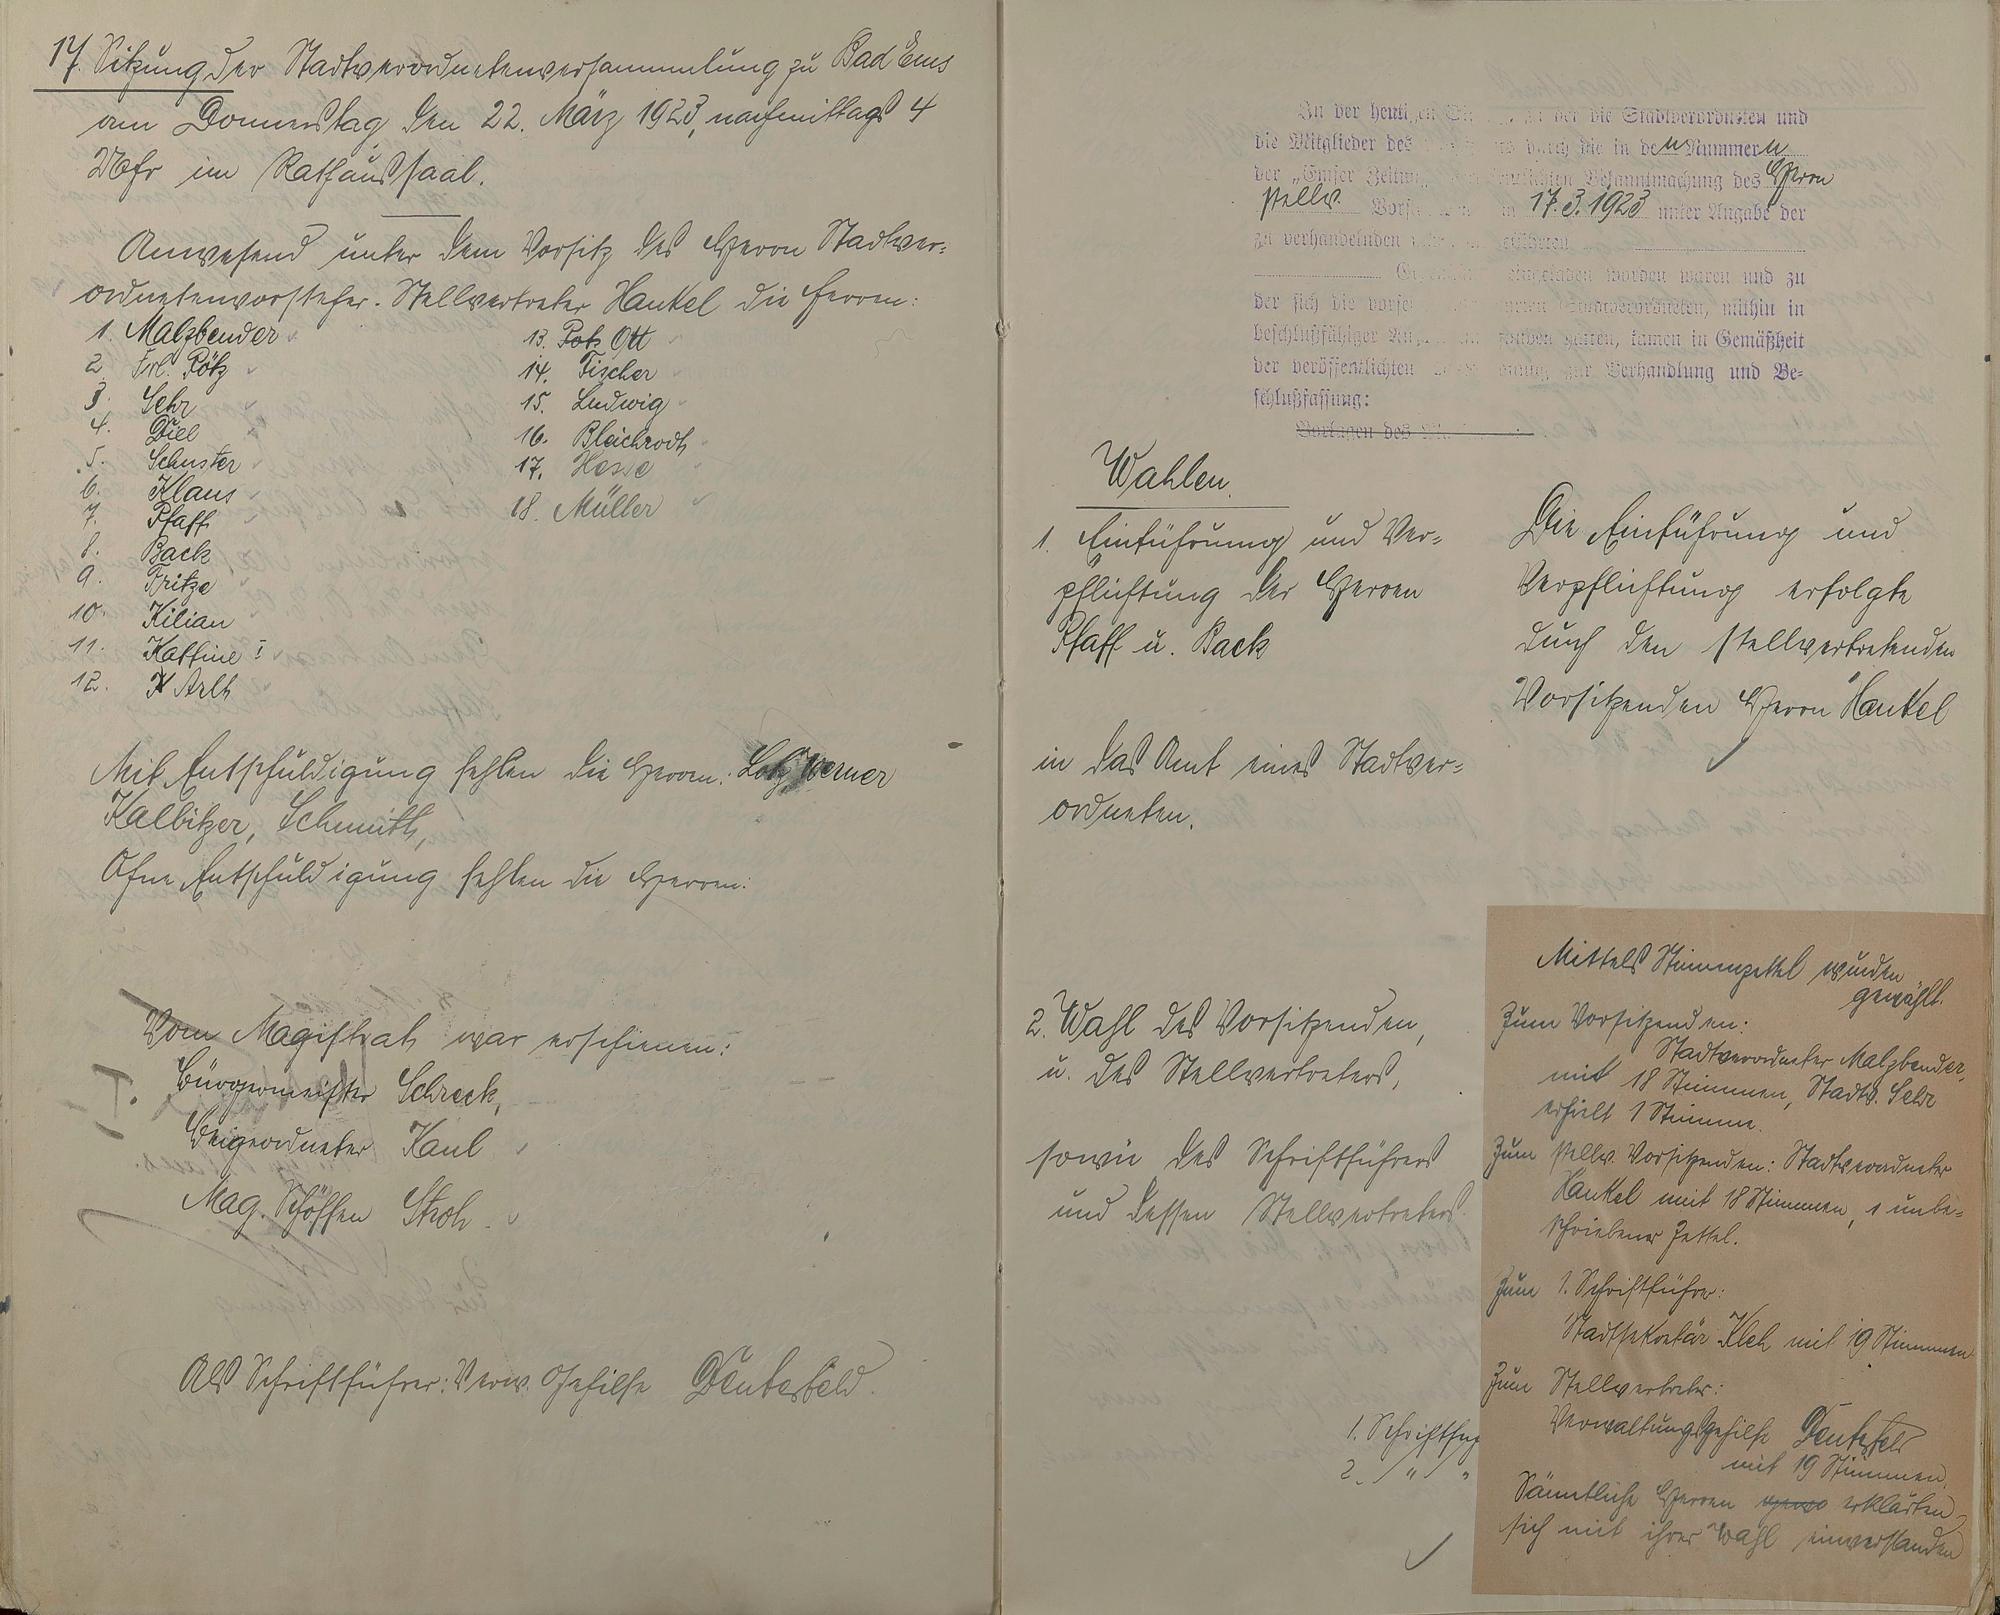 17. Sitzung der Stadtverordnetenversammlung zu Bad Ems
am Donnerstag, den 22. März 1923, nachmittags 4
Uhr im Rathaussaal.
Anwesend unter dem Vorsitz des Herrn Stadtver=
ordnetenvorsteher-Stellvertreter Hankel die Herren:
1. Malzbender
2. Frl. Pötz
3. Sehr
4. Diel
5. Schuster
6. Klaus
7. Pfaff
8. Back
9. Fritze
10. Kilian
11. Kaffine I
12. Arlt
13. Ott
14. Fischer
15. Ludwig
16. Bleichrodt
17. Hesse
18. Müller
Mit Entschuldigung fehlen die Herren: Lotz, Werner
Kalbitzer, Schmitt,
Ohne Entschuldigung fehlen die Herren:
Vom Magistrat war erschienen:
Bürgermeister Schreck,
Beigeordneter Kaul
Mag. Schöffen Stroh
Als Schriftführer: Verw. Gehilfe Deutesfeld.
In der heutigen der die Stadtverordneten und
die Mitglieder des durch die in den Nummern
der „Emser Zeitung Bekanntmachung des Herrn
stellv. 17.3.1923 unter Angabe der
zu verhandelnden
eingeladen worden waren und zu
der sich die Stadtverordneten, mithin in
beschlußfähiger hatten, kamen in Gemäßheit
der veröffentlichten zur Verhandlung und Be-
schlußfassung:
Vorlagen des
Wahlen.
1. Einführung und Ver=
pflichtung der Herren
Pfaff u. Back
in das Amt eines Stadtver=
ordneten.
Die Einführung und
Verpflichtung erfolgte
durch den stellvertretenden
Vorsitzenden Herrn Hankel
2. Wahl des Vorsitzenden,
u. des Stellvertreters,
sowie des Schriftführers
und dessen Stellvertreters.
1. Schriftfüh
2. " "
Mittels Stimmzettel wurden
gewählt.
Zum Vorsitzenden:
Stadtverordneter Malzbender,
mit 18 Stimmen, Stadtv. Sehr
erhielt 1 Stimme.
Zum stellv. Vorsitzenden: Stadtverordneter
Hankel mit 18 Stimmen, 1 unbe=
schriebener Zettel.
Zum 1. Schriftführer:
Stadtsekretär Kleh mit 19 Stimmen
Zum Stellvertreter:
Verwaltungsgehilfe Deutesfeld
mit 19 Stimmen.
Sämtliche Herren erklärten
sich mit ihrer Wahl einverstanden